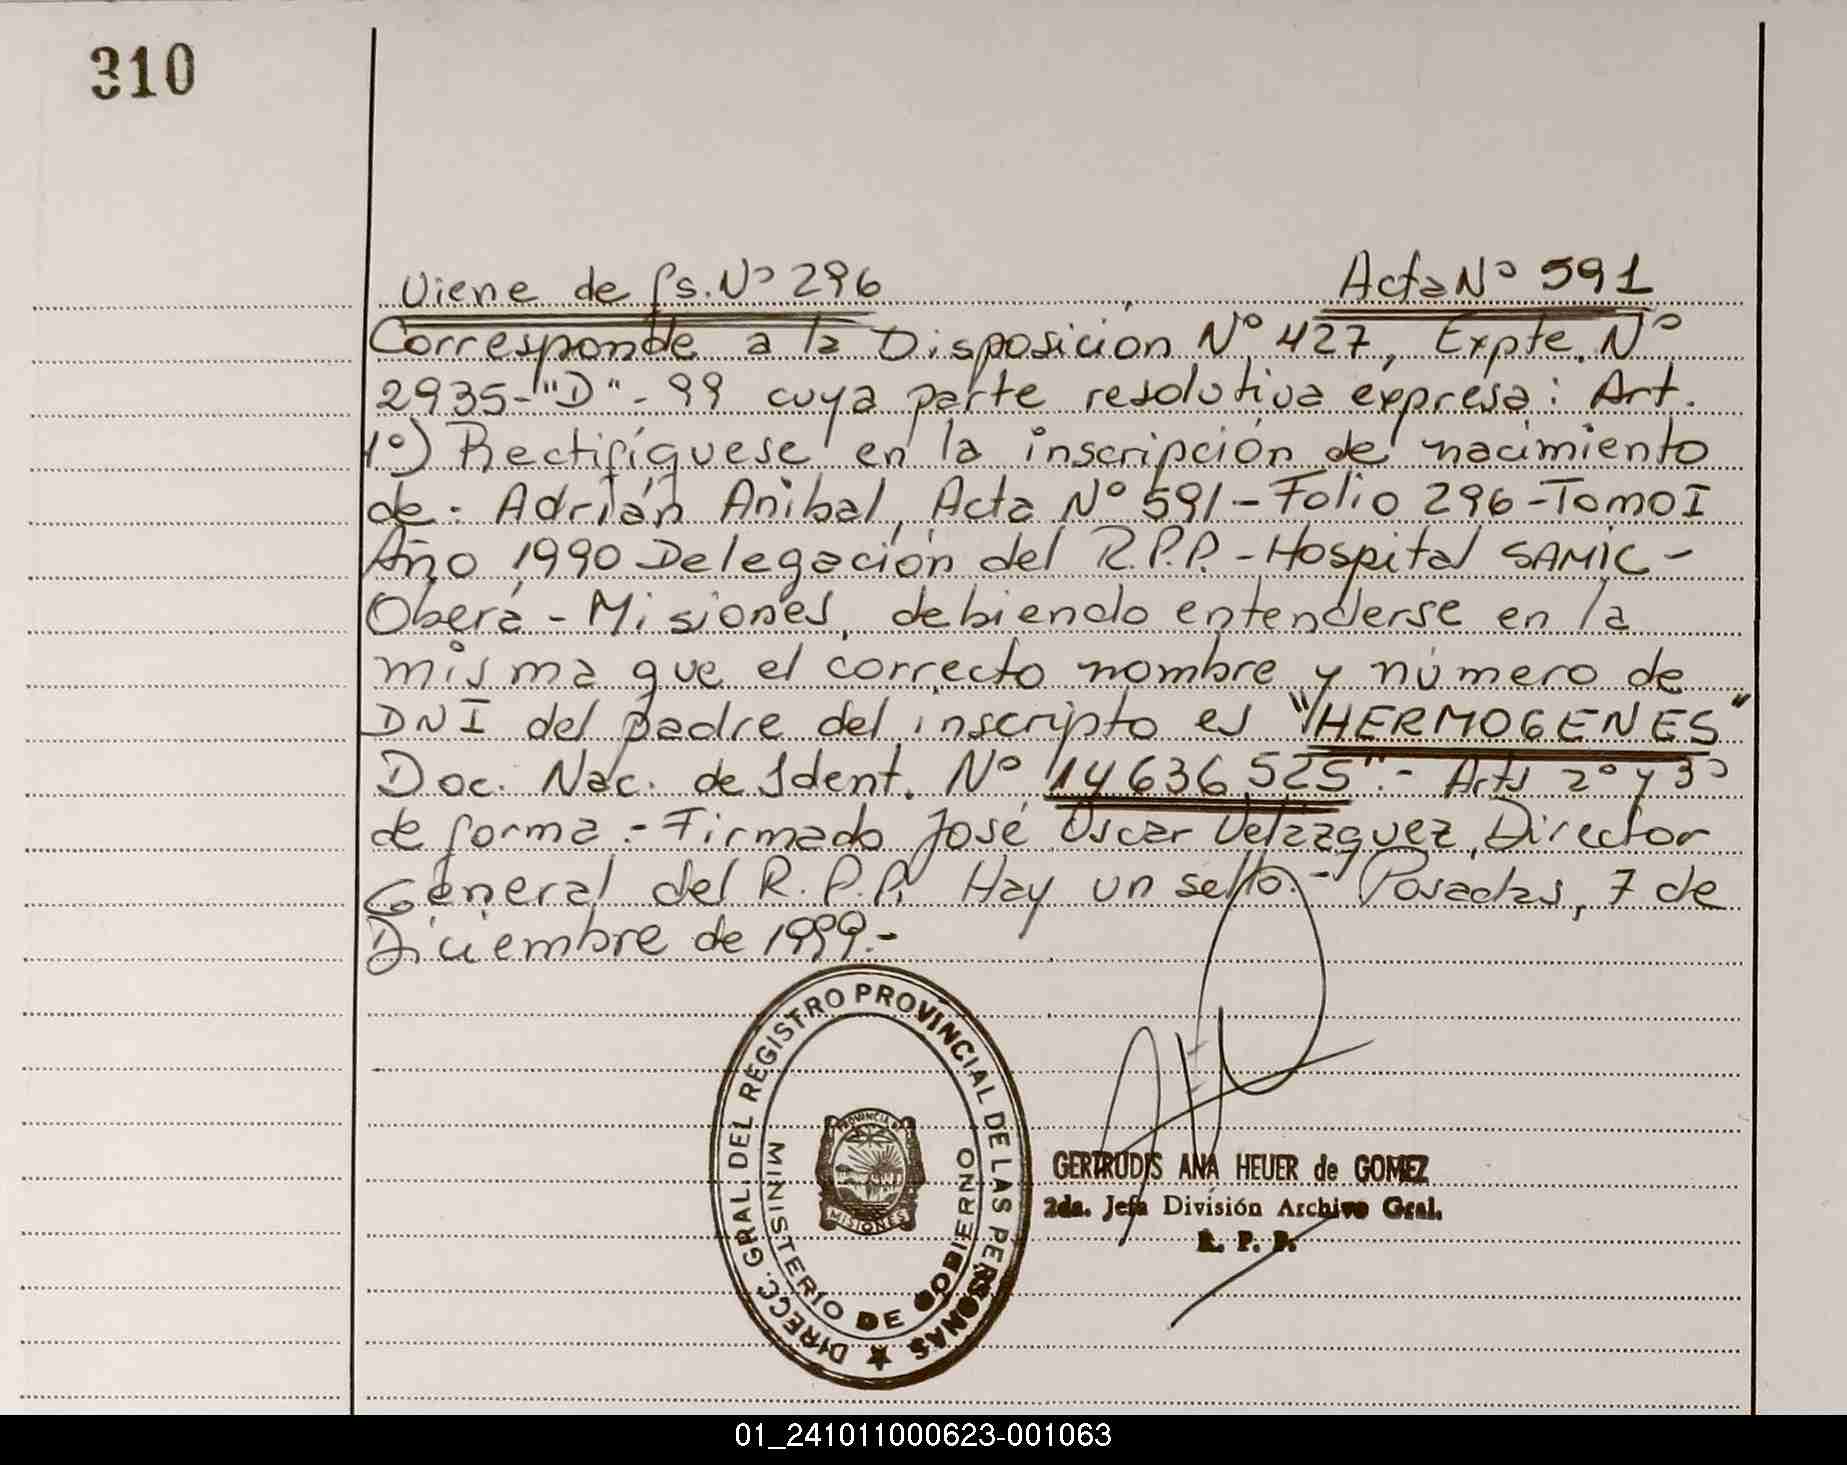 310
Viene de fs. Nº 296 Acta Nº 591
Corresponde a la Disposición Nº 427, Expte. Nº
2935-"D"-99 cuya parte resolutiva expresa: Art.
1º) Rectifíquese en la inscripción de nacimiento
de: Adrián Anibal, Acta Nº 591-Folio 296-Tomo I
Año 1990 Delegación del R.P.P.-Hospital SAMIC-
Oberá-Misiones, debiendo entenderse en la
misma que el correcto nombre y número de
DNI del padre del inscripto es "HERMOGENES"
Doc. Nac. de Ident. Nº 14636525".- Arts 2º y 3º
de forma.- Firmado José Oscar Velazquez, Director
General del R.P.P. Hay un sello.- Posadas, 7 de
Diciembre de 1999.-
DIRECC. GRAL. DEL REGISTRO PROVINCIAL DE LAS PERSONAS
MINISTERIO DE GOBIERNO
PROVINCIA DE
MISIONES
GERTRUDIS ANA HEUER de GOMEZ
2da. Jefa División Archivo Gral.
R. P. P.
01_241011000623-001063